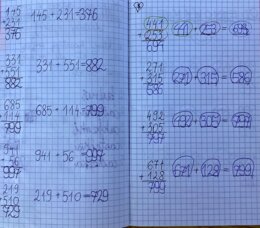 145
+231
376
145 + 231 = 376
331
+551
882
331 + 551 = 882
685
+114
799
685 + 114 = 799
941
+56
997
941 + 56 = 997
219
+510
729
219 + 510 = 729
441
+253
694
441 + 253 = 694
271
+315
586
271 + 315 = 586
492
+305
797
492 + 305 = 797
671
+128
799
671 + 128 = 799